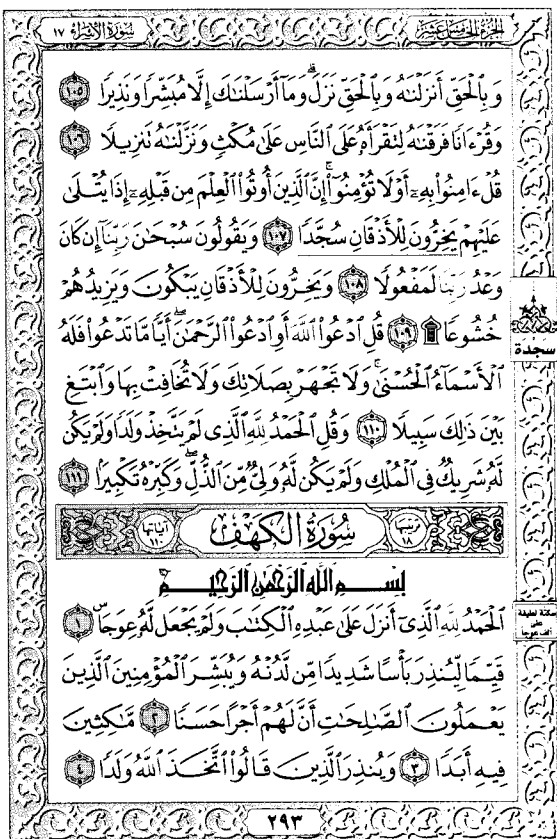 الجزء الخامس عشر
سورة الإسراء ١٧
وَبِالْحَقِّ أَنزَلْنَٰهُ وَبِالْحَقِّ نَزَلَ ۗ وَمَآ أَرْسَلْنَٰكَ إِلَّا مُبَشِّرًا وَنَذِيرًا ١٠٥
وَقُرْءَانًا فَرَقْنَٰهُ لِتَقْرَأَهُۥ عَلَى النَّاسِ عَلَىٰ مُكْثٍ وَنَزَّلْنَٰهُ تَنزِيلًا ١٠٦
قُلْ ءَامِنُوا۟ بِهِۦٓ أَوْ لَا تُؤْمِنُوٓا۟ ۚ إِنَّ الَّذِينَ أُوتُوا۟ الْعِلْمَ مِن قَبْلِهِۦٓ إِذَا يُتْلَىٰ
عَلَيْهِمْ يَخِرُّونَ لِلْأَذْقَانِ سُجَّدًا ١٠٧ وَيَقُولُونَ سُبْحَٰنَ رَبِّنَآ إِن كَانَ
وَعْدُ رَبِّنَا لَمَفْعُولًا ١٠٨ وَيَخِرُّونَ لِلْأَذْقَانِ يَبْكُونَ وَيَزِيدُهُمْ
خُشُوعًا ۩ ١٠٩ قُلِ ادْعُوا۟ اللَّهَ أَوِ ادْعُوا۟ الرَّحْمَٰنَ ۖ أَيًّا مَّا تَدْعُوا۟ فَلَهُ
سجدة
الْأَسْمَآءُ الْحُسْنَىٰ ۚ وَلَا تَجْهَرْ بِصَلَاتِكَ وَلَا تُخَافِتْ بِهَا وَابْتَغِ
بَيْنَ ذَٰلِكَ سَبِيلًا ١١٠ وَقُلِ الْحَمْدُ لِلَّهِ الَّذِى لَمْ يَتَّخِذْ وَلَدًا وَلَمْ يَكُن
لَّهُۥ شَرِيكٌ فِى الْمُلْكِ وَلَمْ يَكُن لَّهُۥ وَلِىٌّ مِّنَ الذُّلِّ ۖ وَكَبِّرْهُ تَكْبِيرًۢا ١١١
ترتيبها ١٨ سُورَةُ الكَهْفِ آياتها ١١٠
بِسْمِ اللَّهِ الرَّحْمَٰنِ الرَّحِيمِ
الْحَمْدُ لِلَّهِ الَّذِىٓ أَنزَلَ عَلَىٰ عَبْدِهِ الْكِتَٰبَ وَلَمْ يَجْعَل لَّهُۥ عِوَجَا ۜ ١
سكتة لطيفة
على
ألف عوجا
قَيِّمًا لِّيُنذِرَ بَأْسًا شَدِيدًا مِّن لَّدُنْهُ وَيُبَشِّرَ الْمُؤْمِنِينَ الَّذِينَ
يَعْمَلُونَ الصَّٰلِحَٰتِ أَنَّ لَهُمْ أَجْرًا حَسَنًا ٢ مَّٰكِثِينَ
فِيهِ أَبَدًا ٣ وَيُنذِرَ الَّذِينَ قَالُوا۟ اتَّخَذَ اللَّهُ وَلَدًا ٤
٢٩٣